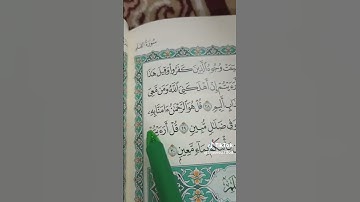 سُورَةُ القَلَم
وُجُوهُ ٱلَّذِينَ كَفَرُوا۟ وَقِيلَ هَٰذَا
إِنْ أَهْلَكَنِىَ ٱللَّهُ وَمَن مَّعِىَ
أَلِيمٍ ٢٨ قُلْ هُوَ ٱلرَّحْمَٰنُ ءَامَنَّا بِهِۦ
فِى ضَلَٰلٍ مُّبِينٍ ٢٩ قُلْ أَرَءَيْتُمْ
يَأْتِيكُم بِمَآءٍ مَّعِينٍۭ ٣٠